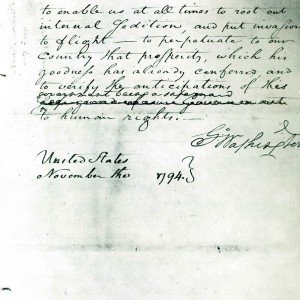 to enable us at all times to root out
internal sedition and put invasion
to flight — to perpetuate to our
Country that prosperity, which his
goodness has already conferred, and
to verify the anticipations of this
government being a safeguard
to human rights. —
Go Washington
United States
November the 1794.